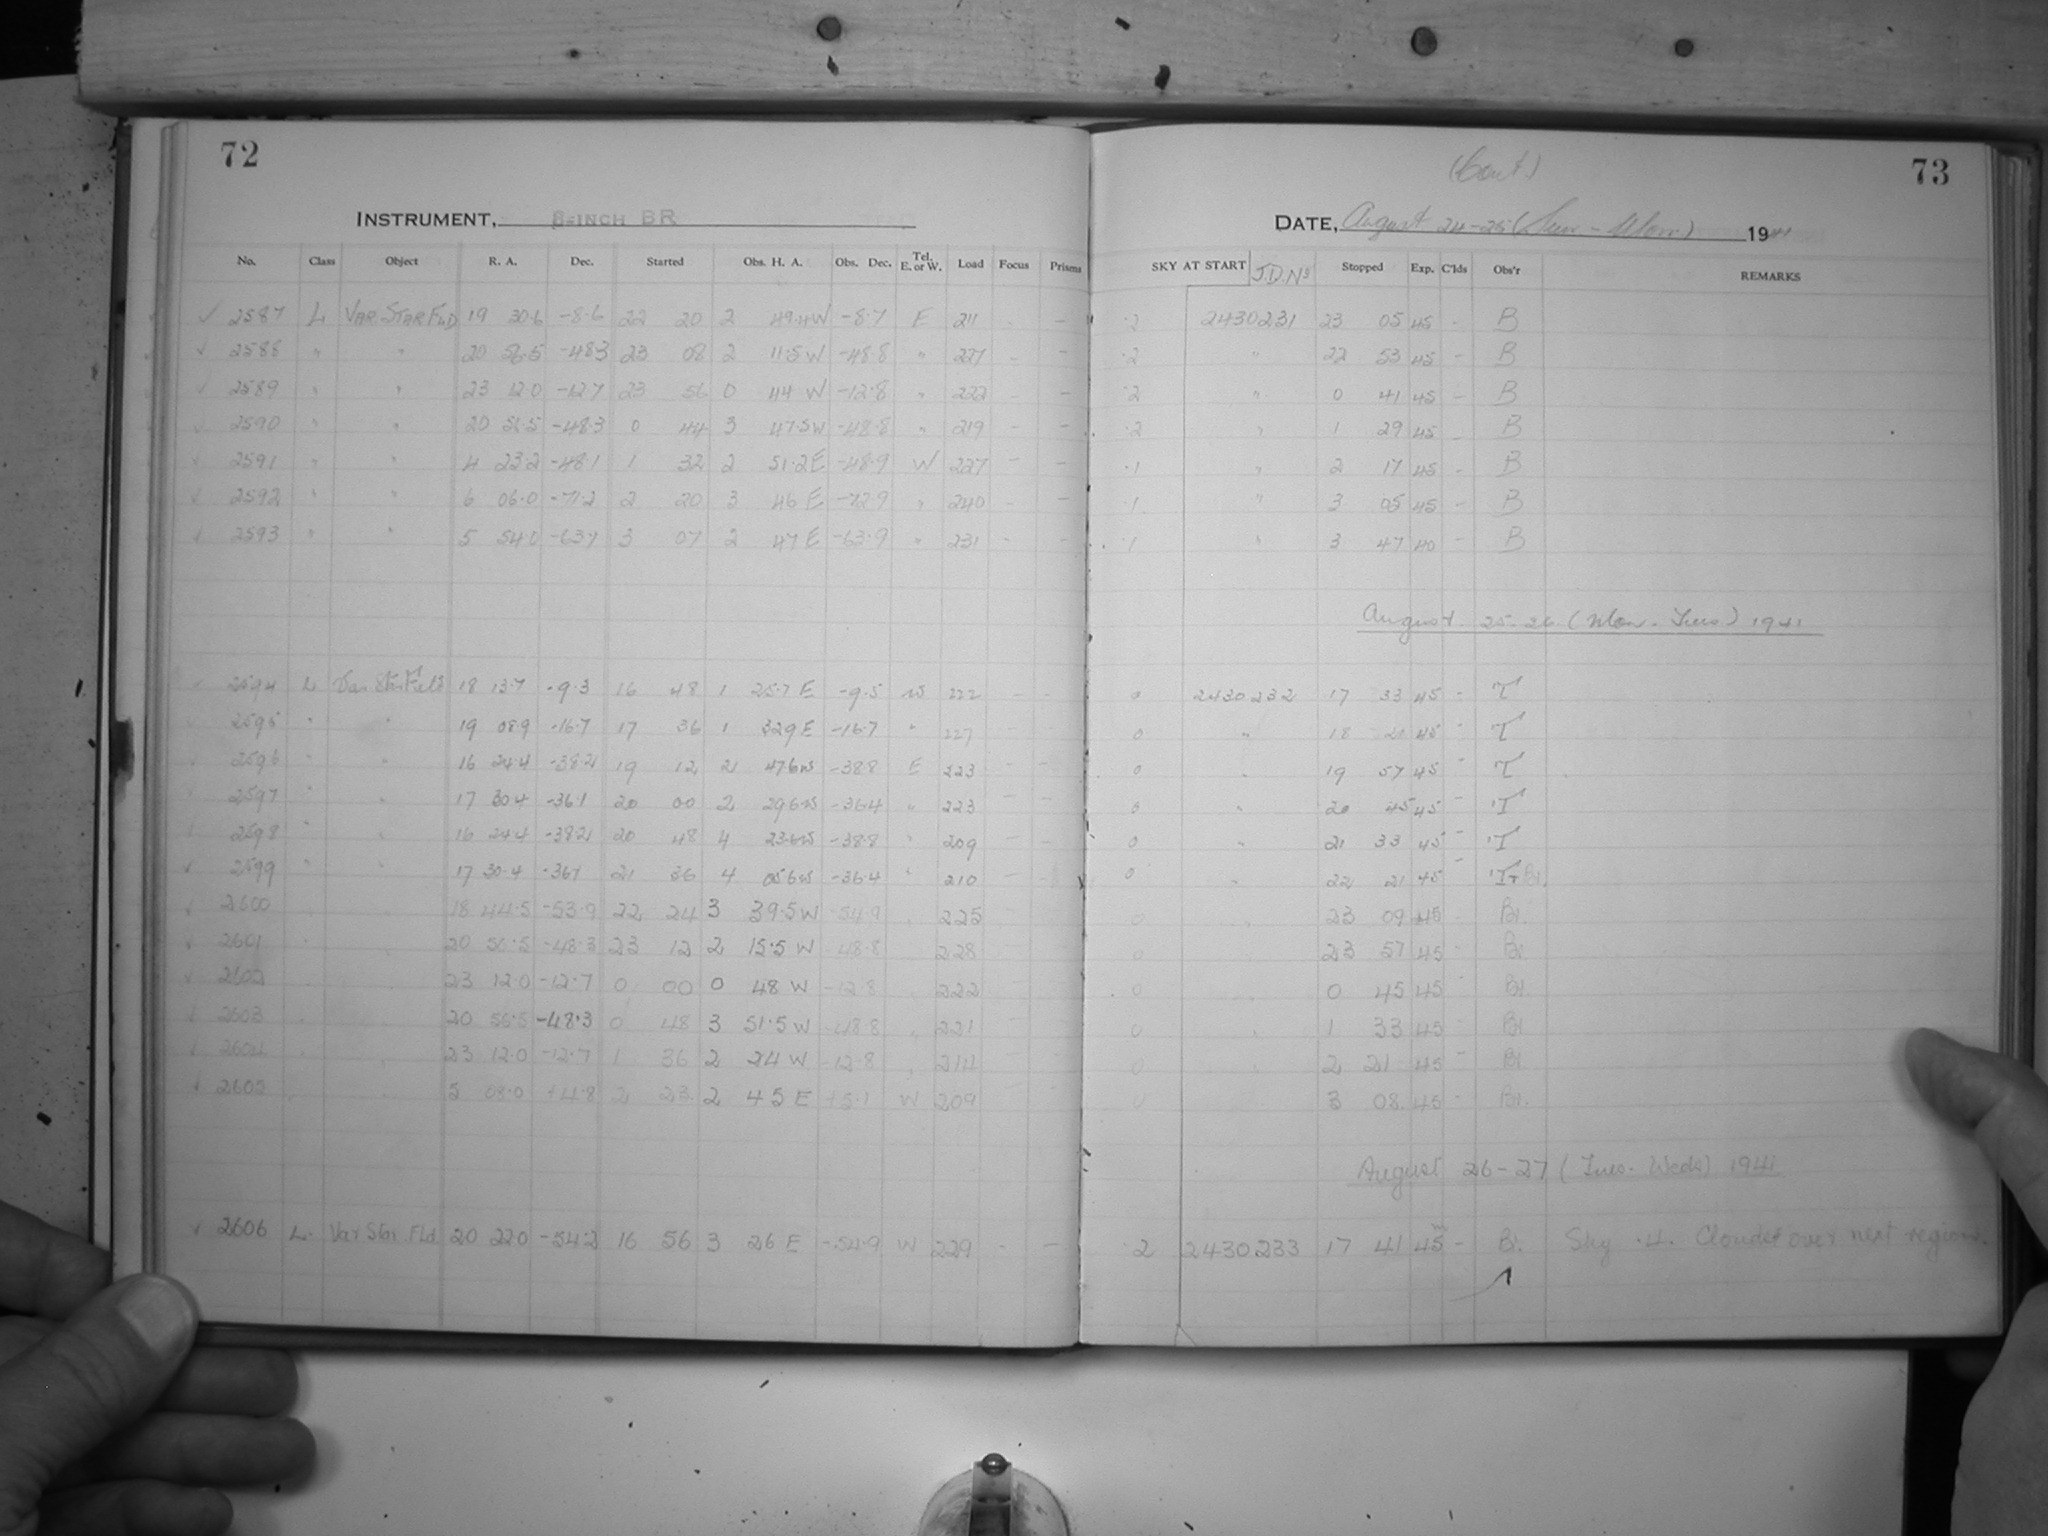 72
INSTRUMENT, 8-INCH BR
No. Class Object R. A. Dec. Started Obs. H. A. Obs. Dec. Tel. E. or W. Load Focus Prisms
✓ 2587 L VAR. STAR FLD 19 30.6 -8.6 22 20 2 49.4W -8.7 E 211 - -
✓ 2588 " " 20 56.5 -48.3 23 08 2 11.5 W -48.8 " 227 - -
✓ 2589 " " 23 12.0 -12.7 23 56 0 44 W -12.8 " 222 - -
✓ 2590 " " 20 56.5 -48.3 0 44 3 47.5W -48.8 " 219 - -
✓ 2591 " " 4 23.2 -48.1 1 32 2 51.2E -48.9 W 227 - -
✓ 2592 " " 6 06.0 -71.2 2 20 3 46 E -72.9 " 240 - -
✓ 2593 " " 5 54.0 -63.7 3 07 2 47 E -63.9 " 231 - -
2594 L Var Star Field 18 13.7 -9.3 16 48 1 25.7 E -9.5 W 222 - -
2595 " " 19 08.9 -16.7 17 36 1 32.9 E -16.7 " 227 -
2596 " " 16 24.4 -38.2 19 12 2 47.6W -38.8 E 223 - -
2597 " " 17 30.4 -36.1 20 00 2 29.6W -36.4 " 223 - -
2598 " " 16 24.4 -38.2 20 48 4 23.6W -38.8 " 209 - -
✓ 2599 " " 17 30.4 -36.1 21 36 4 05.6W -36.4 " 210 - -
✓ 2600 18 44.5 -53.9 22 24 3 39.5 W -54.9 225
✓ 2601 20 56.5 -48.3 23 12 2 15.5 W -48.8 228
✓ 2602 23 12.0 -12.7 0 00 0 48 W -12.8 222
✓ 2603 20 56.5 -48.3 0 48 3 51.5 W -48.8 221
✓ 2604 23 12.0 -12.7 1 36 2 24 W -12.8 214
✓ 2605 5 08.0 +4.8 2 23 2 45 E +5.1 W 209
✓ 2606 L. Var Star Fld 20 22.0 -54.2 16 56 3 26 E -54.9 W 229 - -
(Cont)
73
DATE, August 24-25 (Sun - Mon) 1941
SKY AT START J.D. No Stopped Exp. C'lds Obs'r REMARKS
.2 2430231 23 05 45 - B
.2 " 22 53 45 - B
.2 " 0 41 45 - B
.2 " 1 29 45 - B
.1 " 2 17 45 - B
.1 " 3 05 45 - B
.1 " 3 47 40 - B
August 25-26 (Mon - Tues) 1941
0 2430232 17 33 45 - T
0 " 18 45 - T
0 " 19 57 45 - T
0 " 20 45 45 - T
0 " 21 33 45 - T
0 " 22 21 45 - T+Bl.
0 23 09 45 Bl.
0 23 57 45 - Bl.
0 0 45 45 - Bl.
0 1 33 45 - Bl.
0 2 21 45 - Bl.
0 3 08 45 - Bl.
August 26-27 (Tues - Weds) 1941
.2 2430233 17 41 45m - Bl. Sky .4. Clouded over next region.